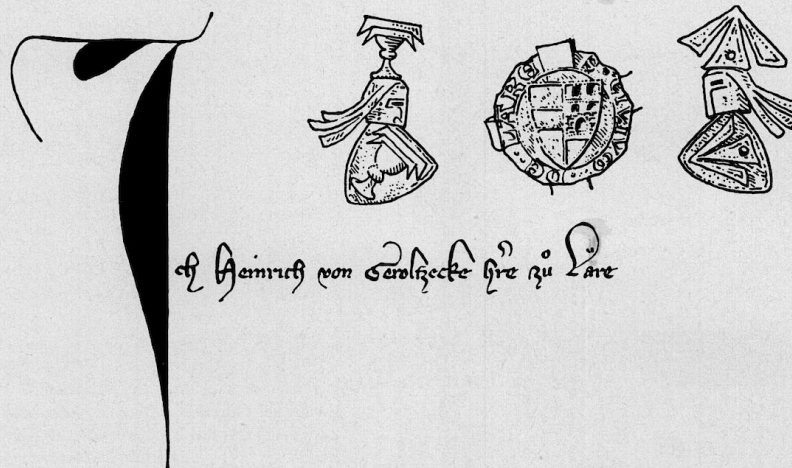 Ich Heinrich von Geroltzecke hr̄e zů Lare